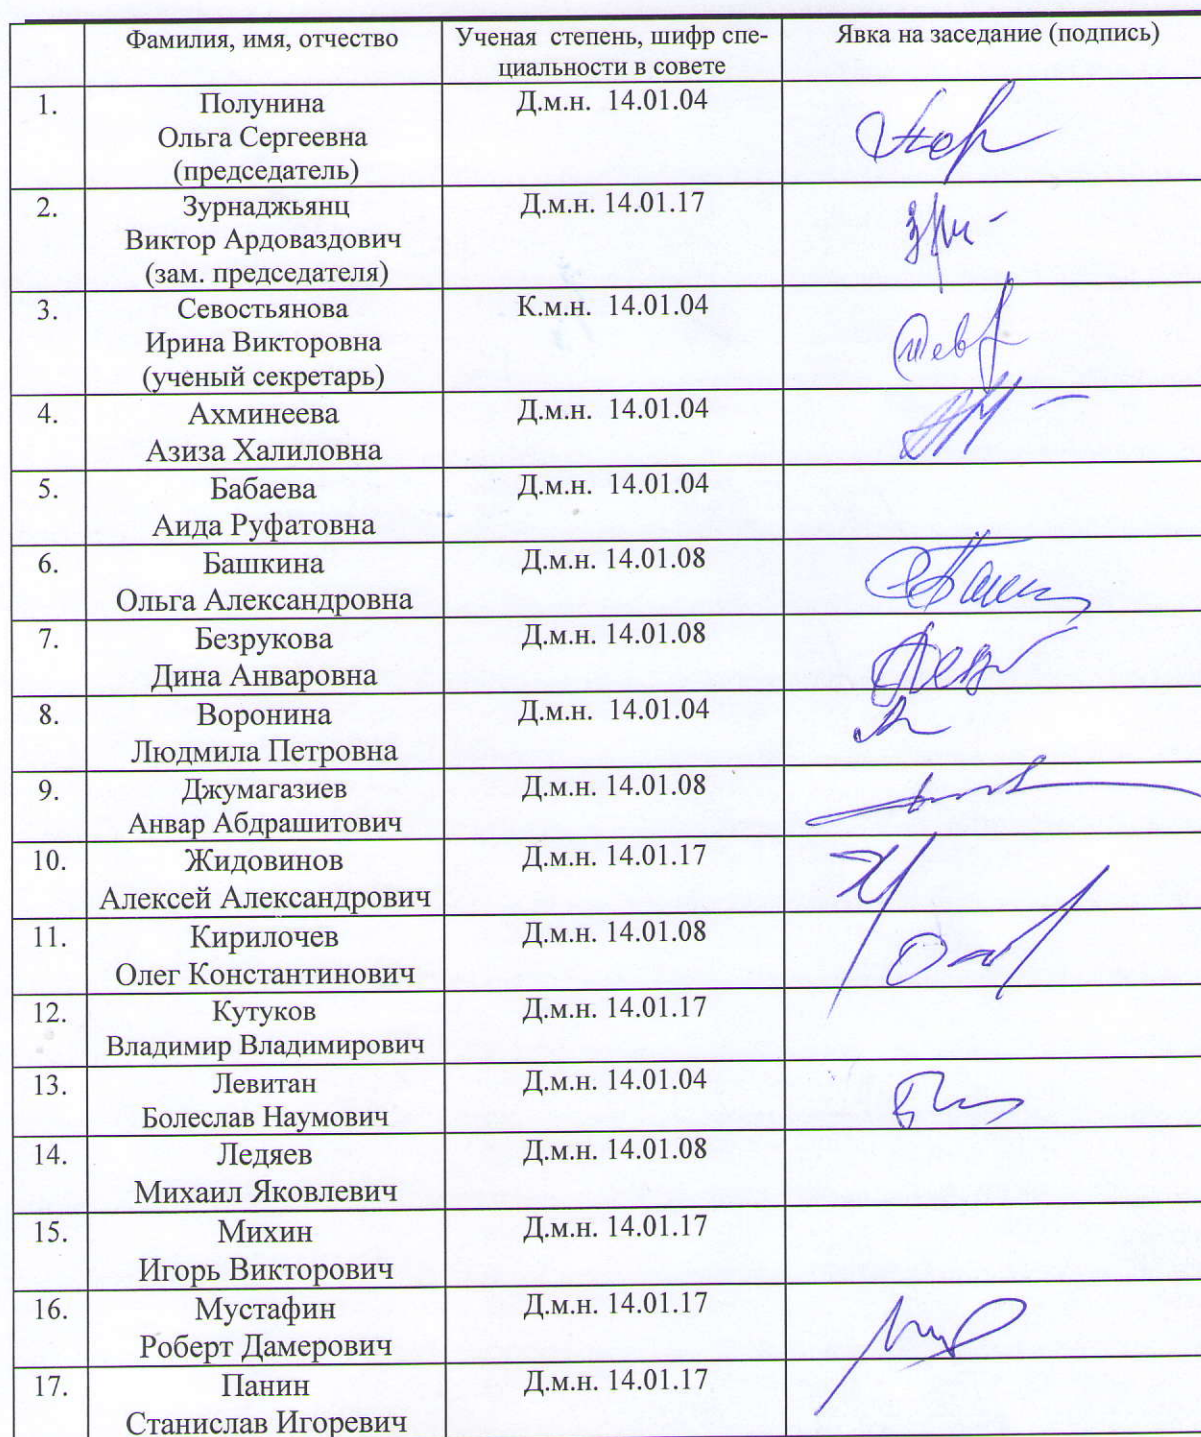 Фамилия, имя, отчество
Ученая степень, шифр спе-
циальности в совете
Явка на заседание (подпись)
1.
Полунина
Ольга Сергеевна
(председатель)
Д.м.н. 14.01.04
2.
Зурнаджьянц
Виктор Ардоваздович
(зам. председателя)
Д.м.н. 14.01.17
3.
Севостьянова
Ирина Викторовна
(ученый секретарь)
К.м.н. 14.01.04
4.
Ахминеева
Азиза Халиловна
Д.м.н. 14.01.04
5.
Бабаева
Аида Руфатовна
Д.м.н. 14.01.04
6.
Башкина
Ольга Александровна
Д.м.н. 14.01.08
7.
Безрукова
Дина Анваровна
Д.м.н. 14.01.08
8.
Воронина
Людмила Петровна
Д.м.н. 14.01.04
9.
Джумагазиев
Анвар Абдрашитович
Д.м.н. 14.01.08
10.
Жидовинов
Алексей Александрович
Д.м.н. 14.01.17
11.
Кирилочев
Олег Константинович
Д.м.н. 14.01.08
12.
Кутуков
Владимир Владимирович
Д.м.н. 14.01.17
13.
Левитан
Болеслав Наумович
Д.м.н. 14.01.04
14.
Ледяев
Михаил Яковлевич
Д.м.н. 14.01.08
15.
Михин
Игорь Викторович
Д.м.н. 14.01.17
16.
Мустафин
Роберт Дамерович
Д.м.н. 14.01.17
17.
Панин
Станислав Игоревич
Д.м.н. 14.01.17